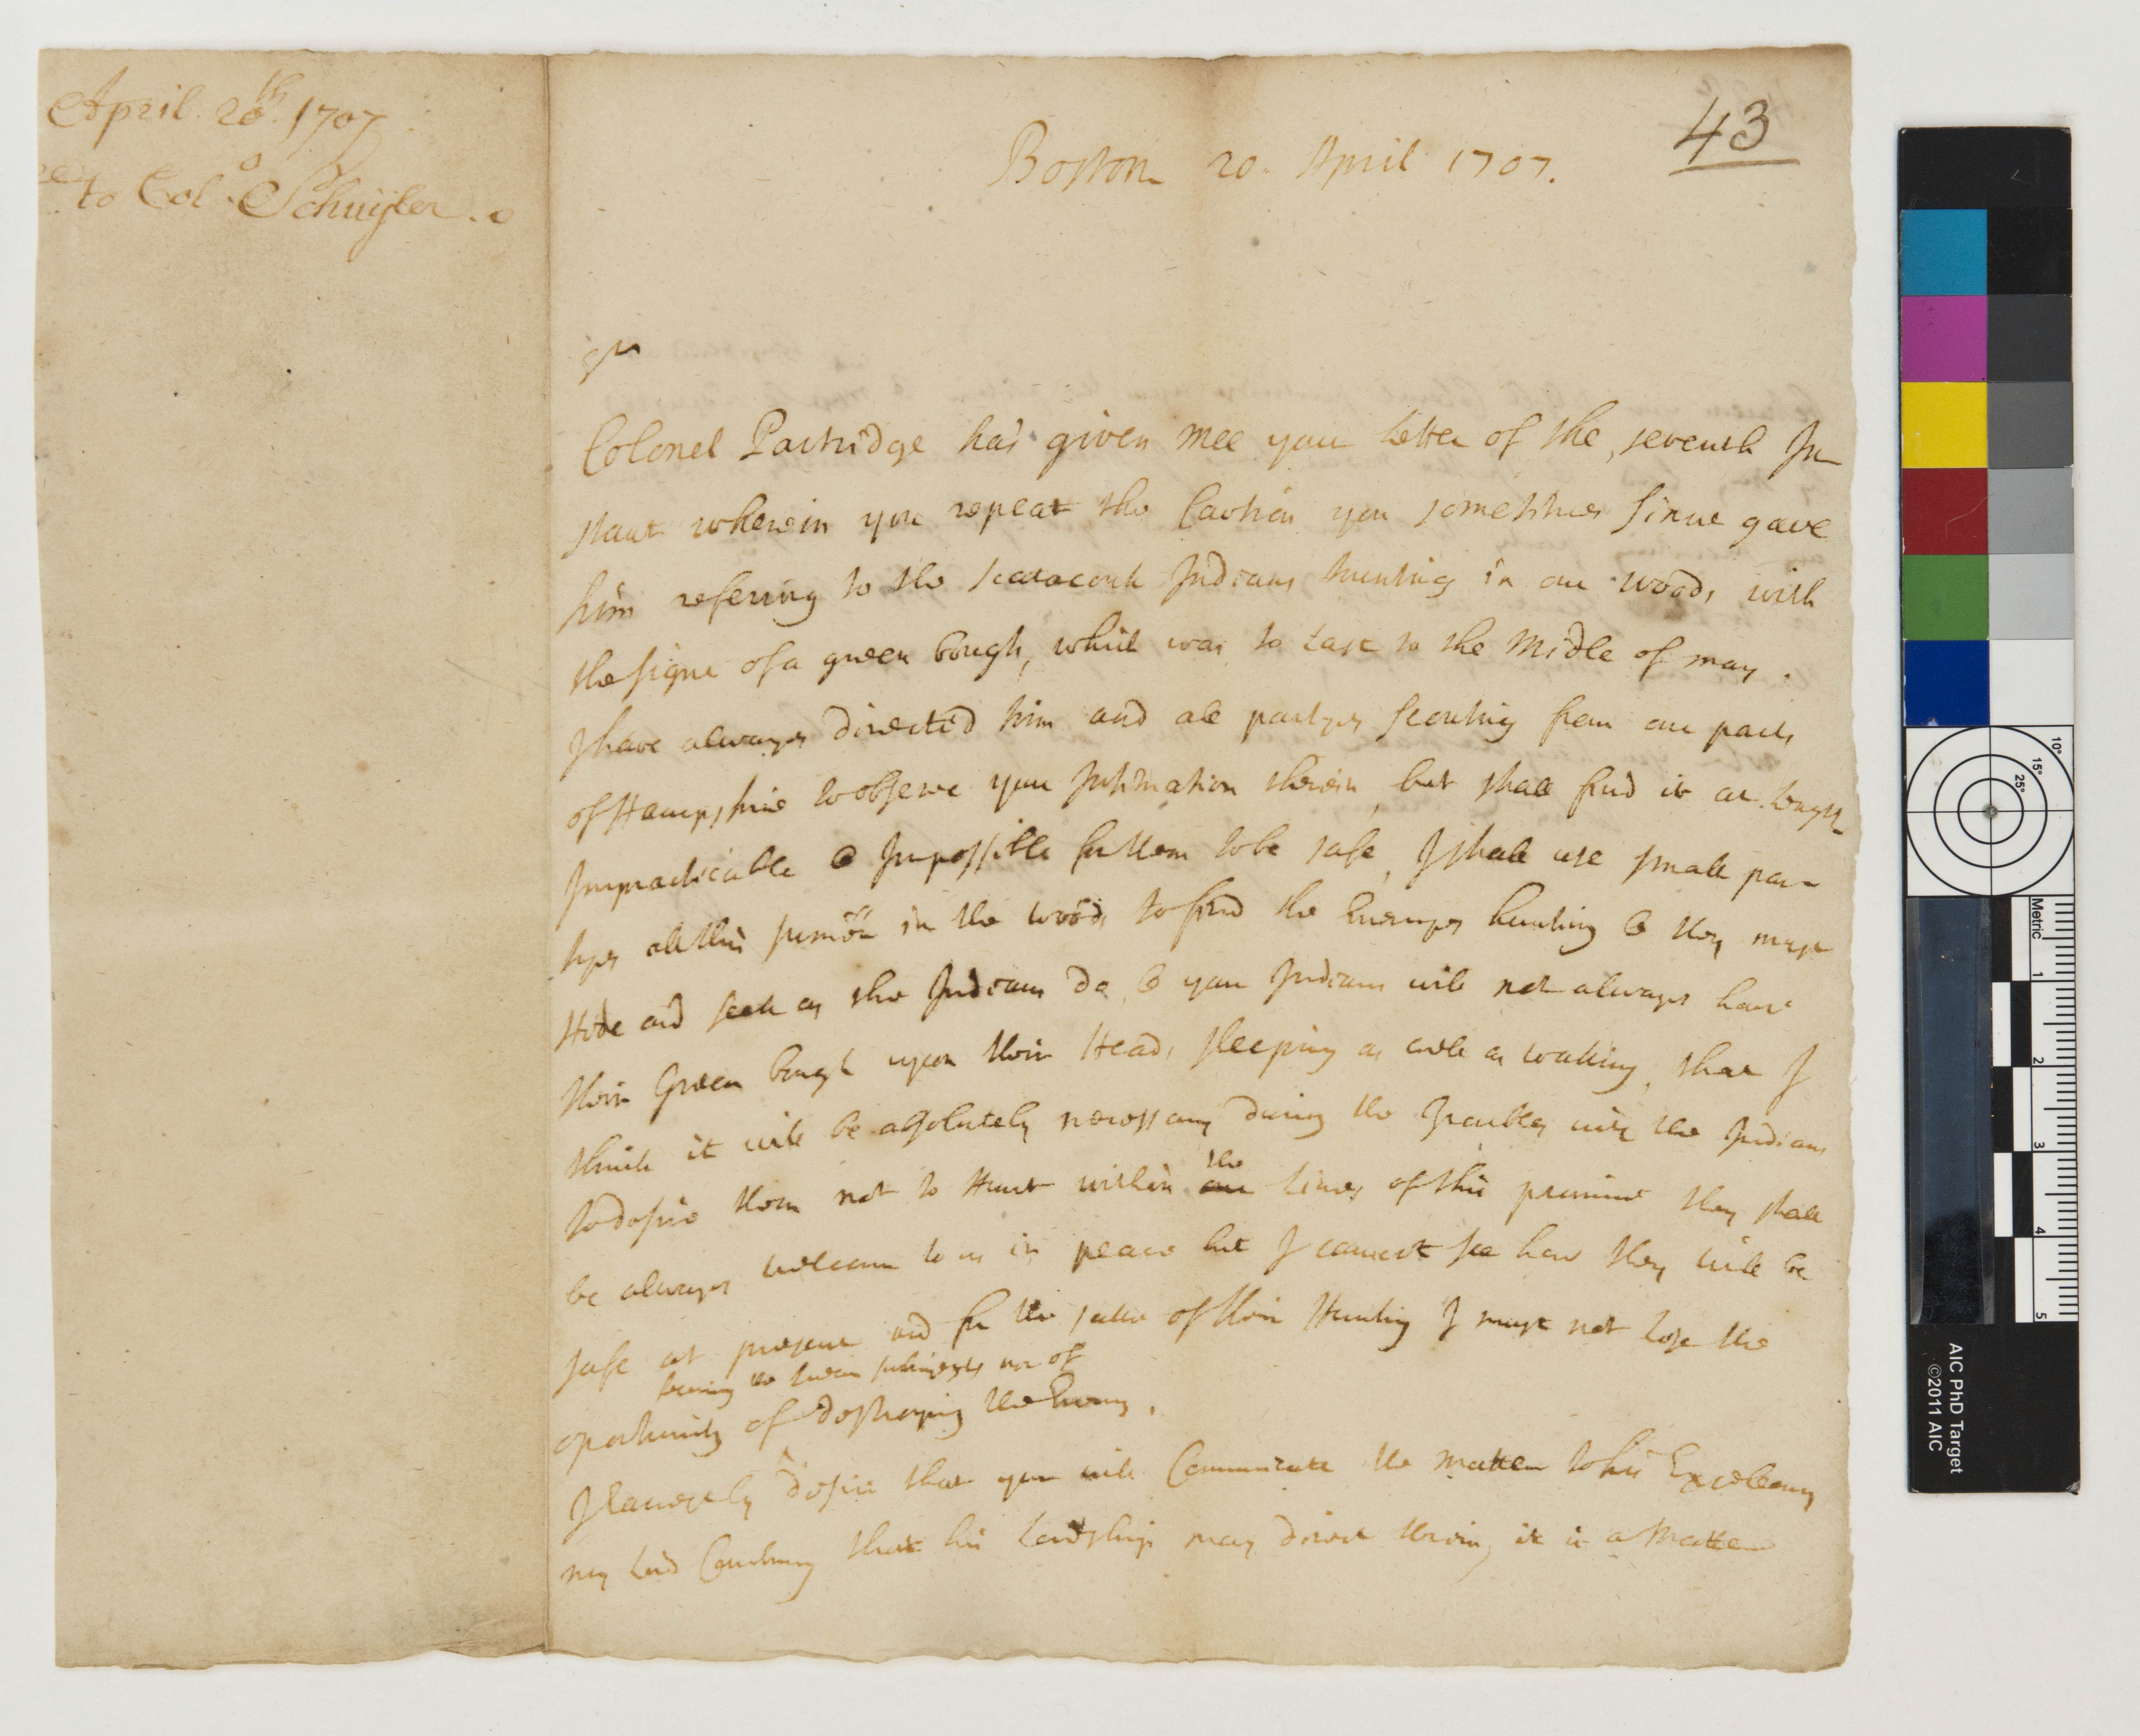 April. 20th. 1707
to Colo. Schuyler.
43
Boston 20. April 1707.
Sr
Colonel Partridge has given mee your letter of the, seventh In
stant wherein you repeat the Caution you sometimes since gave
him refering to the Scatacook Indians hunting in our woods, with
the signe of a green bough, which was to last to the Midle of may.
I have always directed him and all partyes scouting from our parts
of Hampshire to observe your Intimation therein, but shall find it at length
Impracticable & Impossible for them to be safe, I shall use small par=
tyes all this summer in the woods to find the Enemyes hunting & they must
Hide and seek as the Indians do, & your Indians will not always have
their Green bough upon their Heads sleeping as well as waking, that I
think it will be absolutely necessary during the Troubles with the Indians
to desire them not to Hunt within the our lines of this province they shall
be always welcom to us in peace but I cannot see how they will be
safe at present and for the sake of their Hunting I must not lose the
securing the Queens subjects nor of
oportunity of destroying the Enemy.
I earnestly desire that you will Communicate the matter to his Excellency
my Lord Cornbury that his Lordship may direct therein, it is a Matter